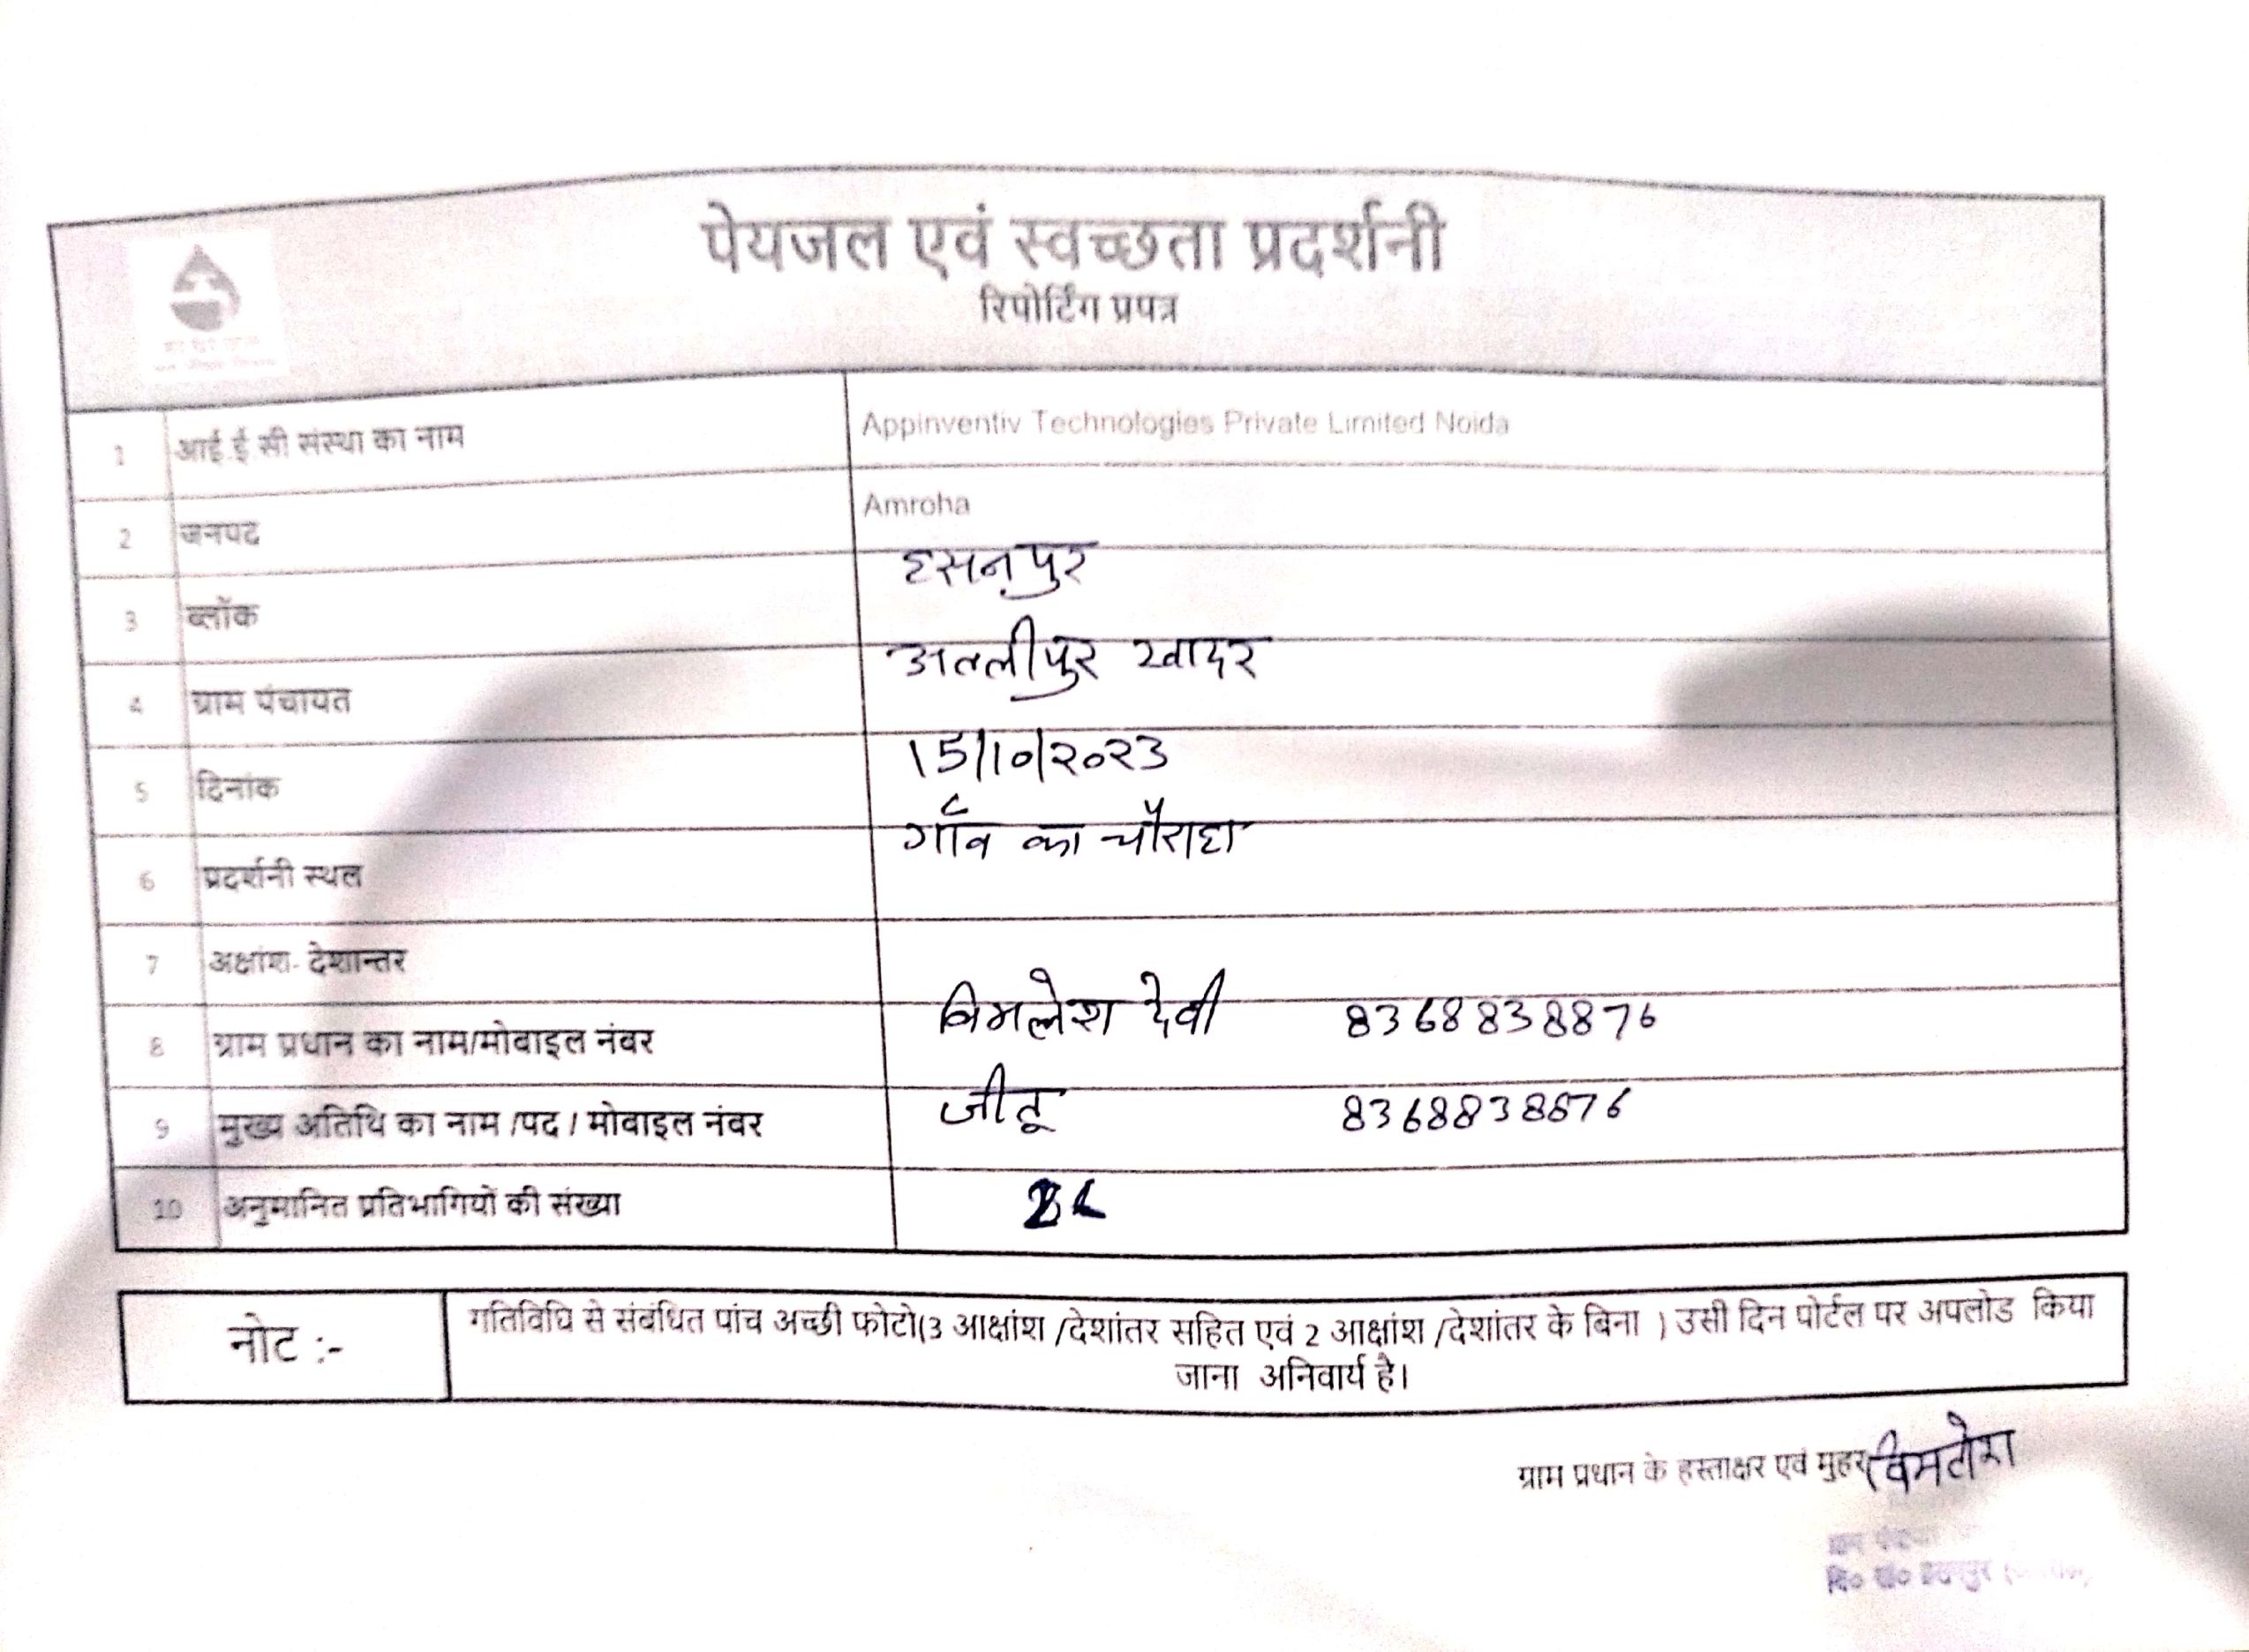 पेयजल एवं स्वच्छता प्रदर्शनी
रिपोर्टिंग प्रपत्र
1 आई.ई.सी संस्था का नाम Appinventiv Technologies Private Limited Noida
2 जनपद Amroha
3 ब्लॉक हसनपुर
4 ग्राम पंचायत खादर
5 दिनांक 15/10/2023
6 प्रदर्शनी स्थल गाँव का चौराहा
7 अक्षांश- देशान्तर
8 ग्राम प्रधान का नाम/मोबाइल नंबर विमलेश देवी 8368838876
9 मुख्य अतिथि का नाम /पद / मोबाइल नंबर जीतू 8368838876
10 अनुमानित प्रतिभागियों की संख्या
नोट :- गतिविधि से संबंधित पांच अच्छी फोटो(3 आक्षांश /देशांतर सहित एवं 2 आक्षांश /देशांतर के बिना ) उसी दिन पोर्टल पर अपलोड किया
जाना अनिवार्य है।
ग्राम प्रधान के हस्ताक्षर एवं मुहर विमलेश